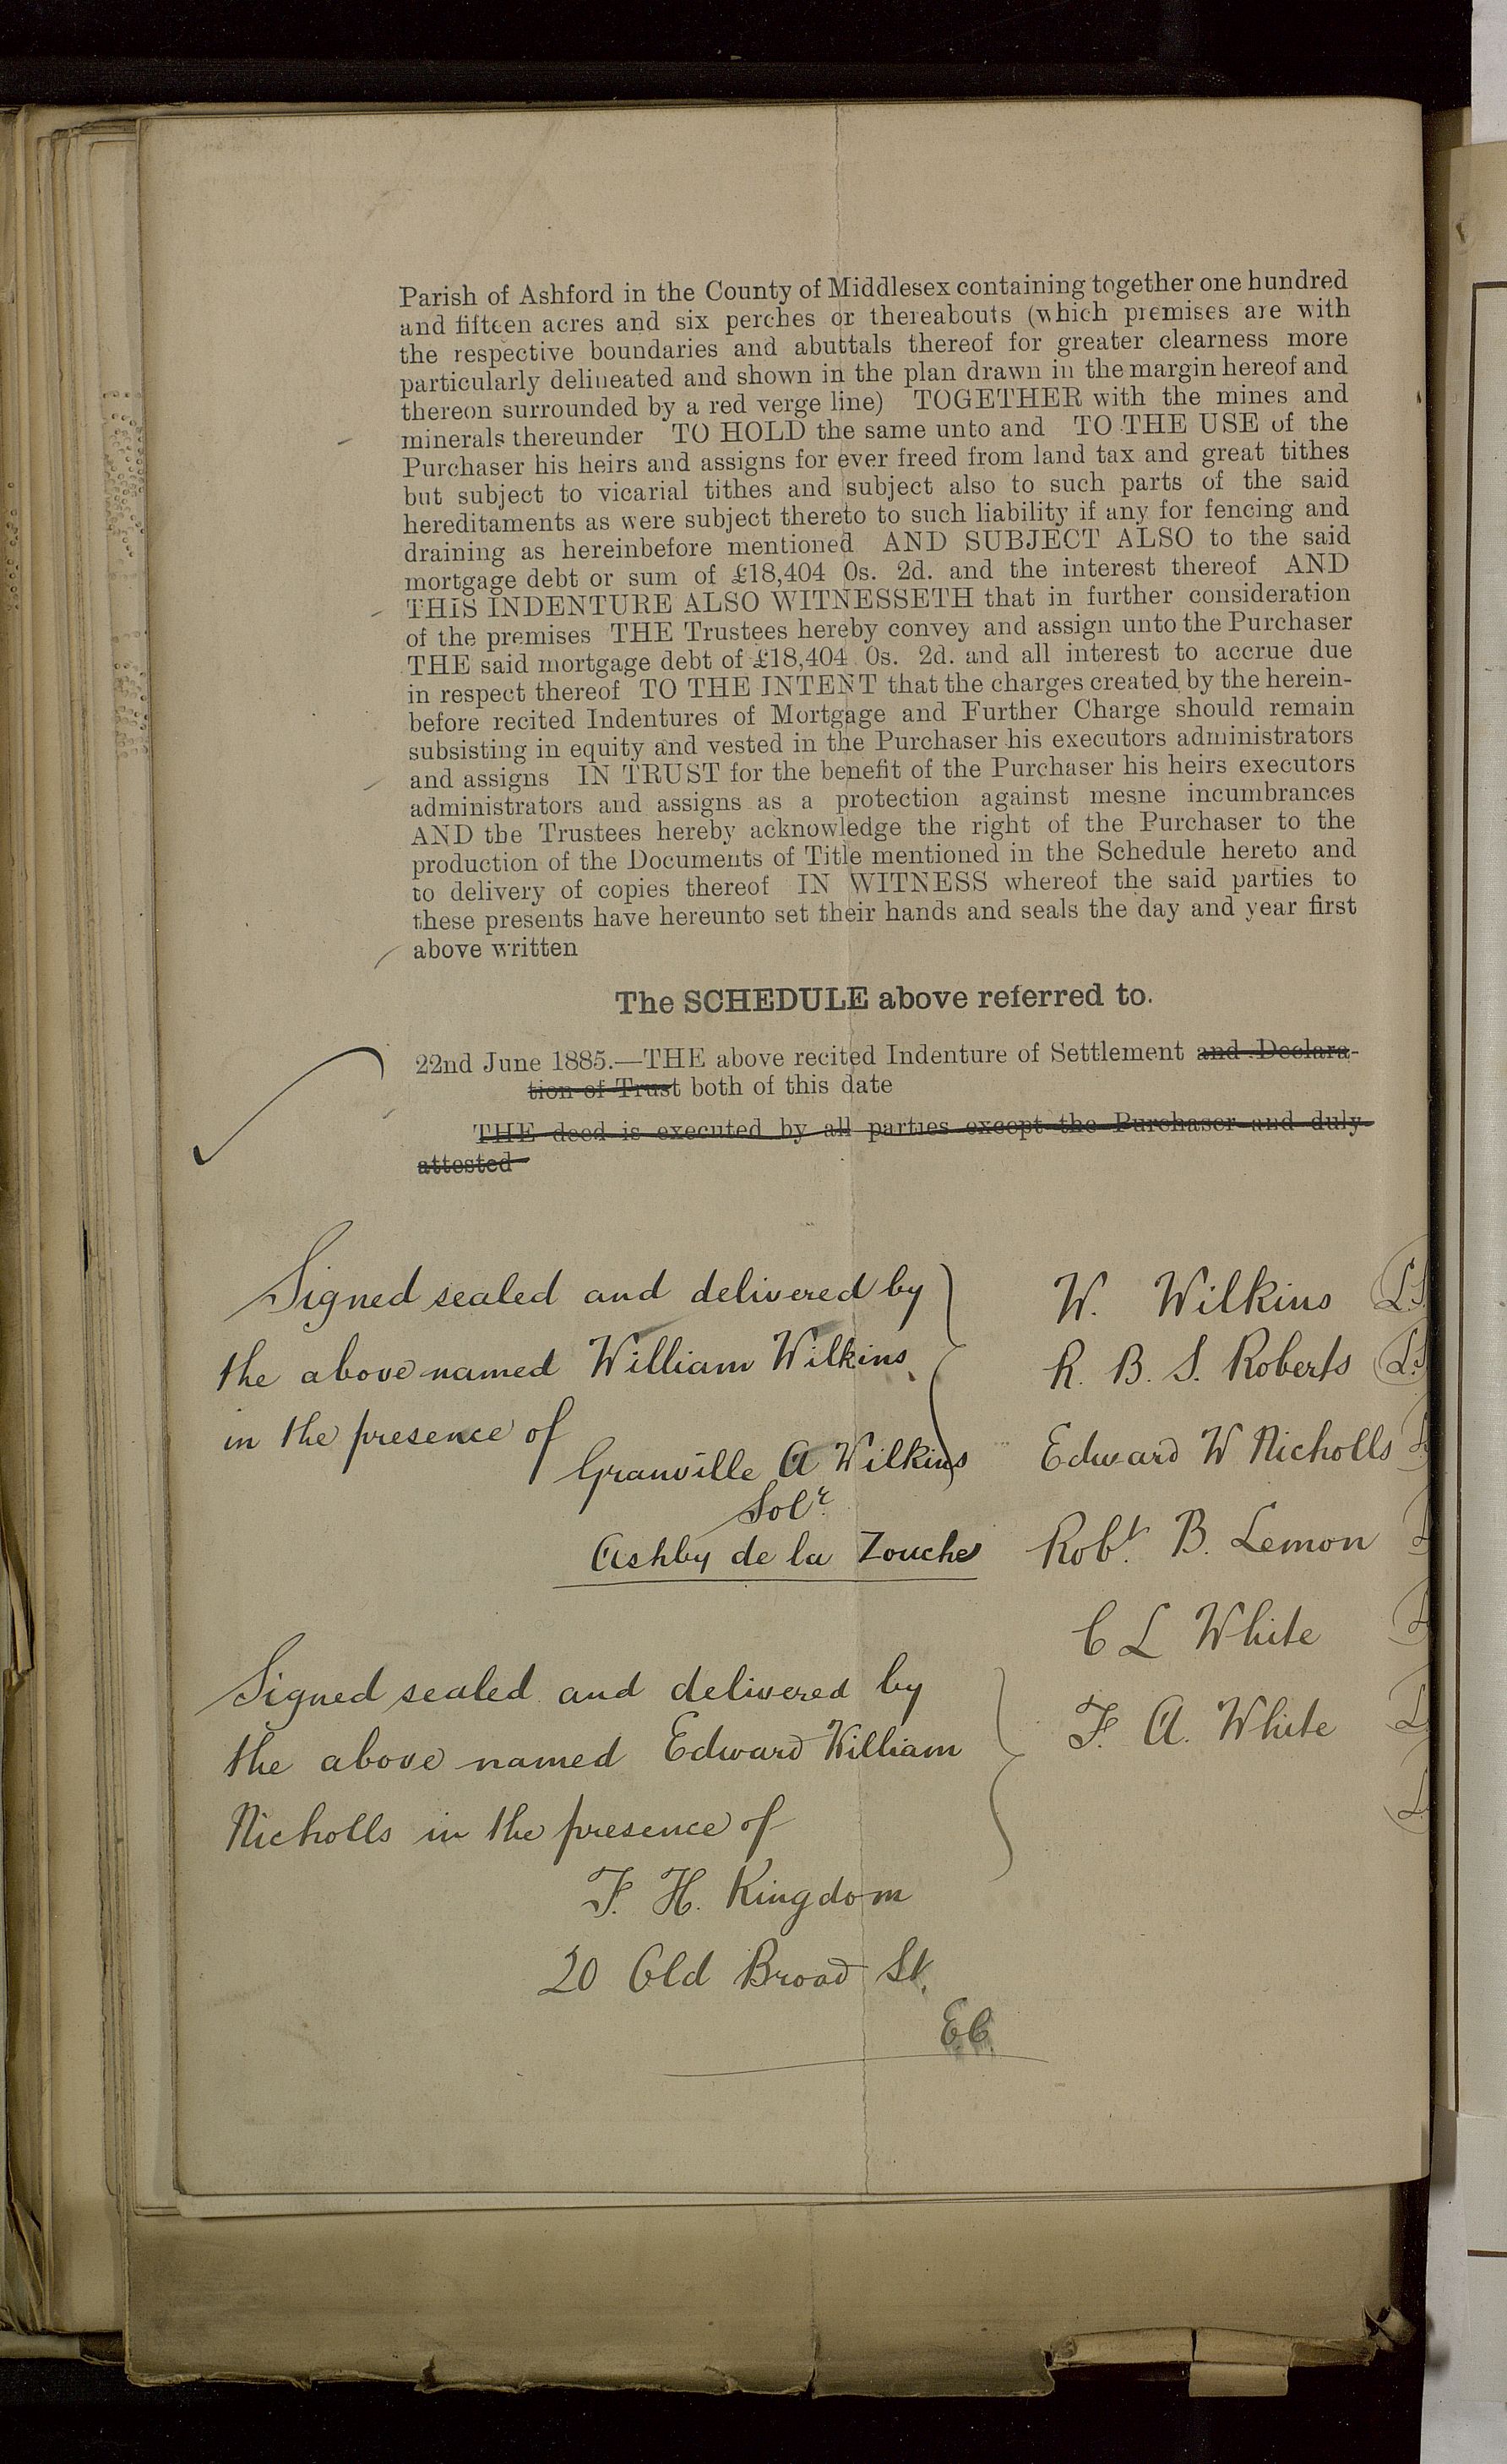 Parish of Ashford in the County of Middlesex containing together one hundred
and fifteen acres and six perches or thereabouts (which premises are with
the respective boundaries and abuttals thereof for greater clearness more
particularly delineated and shown in the plan drawn in the margin hereof and
thereon surrounded by a red verge line) TOGETHER with the mines and
minerals thereunder TO HOLD the same unto and TO THE USE of the
Purchaser his heirs and assigns for ever freed from land tax and great tithes
but subject to vicarial tithes and subject also to such parts of the said
hereditaments as were subject thereto to such liability if any for fencing and
draining as hereinbefore mentioned AND SUBJECT ALSO to the said
mortgage debt or sum of £18,404 0s. 2d. and the interest thereof AND
THIS INDENTURE ALSO WITNESSETH that in further consideration
of the premises THE Trustees hereby convey and assign unto the Purchaser
THE said mortgage debt of £18,404 0s. 2d. and all interest to accrue due
in respect thereof TO THE INTENT that the charges created by the herein-
before recited Indentures of Mortgage and Further Charge should remain
subsisting in equity and vested in the Purchaser his executors administrators
and assigns IN TRUST for the benefit of the Purchaser his heirs executors
administrators and assigns as a protection against mesne incumbrances
AND the Trustees hereby acknowledge the right of the Purchaser to the
production of the Documents of Title mentioned in the Schedule hereto and
to delivery of copies thereof IN WITNESS whereof the said parties to
these presents have hereunto set their hands and seals the day and year first
above written
The SCHEDULE above referred to.
22nd June 1885.—THE above recited Indenture of Settlement and Declara-
tion of Trust both of this date
THE deed is executed by all parties except the Purchaser and duly
attested
Signed sealed and delivered by
the above named William Wilkins
in the presence of
Granville A Wilkins
Solr.
Ashby de la Zouche
W. Wilkins L.S.
R. B. S. Roberts L.S
Edward W Nicholls L
Robt. B. Lemon L
C L White L
F. A. White L
L
Signed sealed and delivered by
the above named Edward William
Nicholls in the presence of
F. H. Kingdom
20 Old Broad St.
E.C.